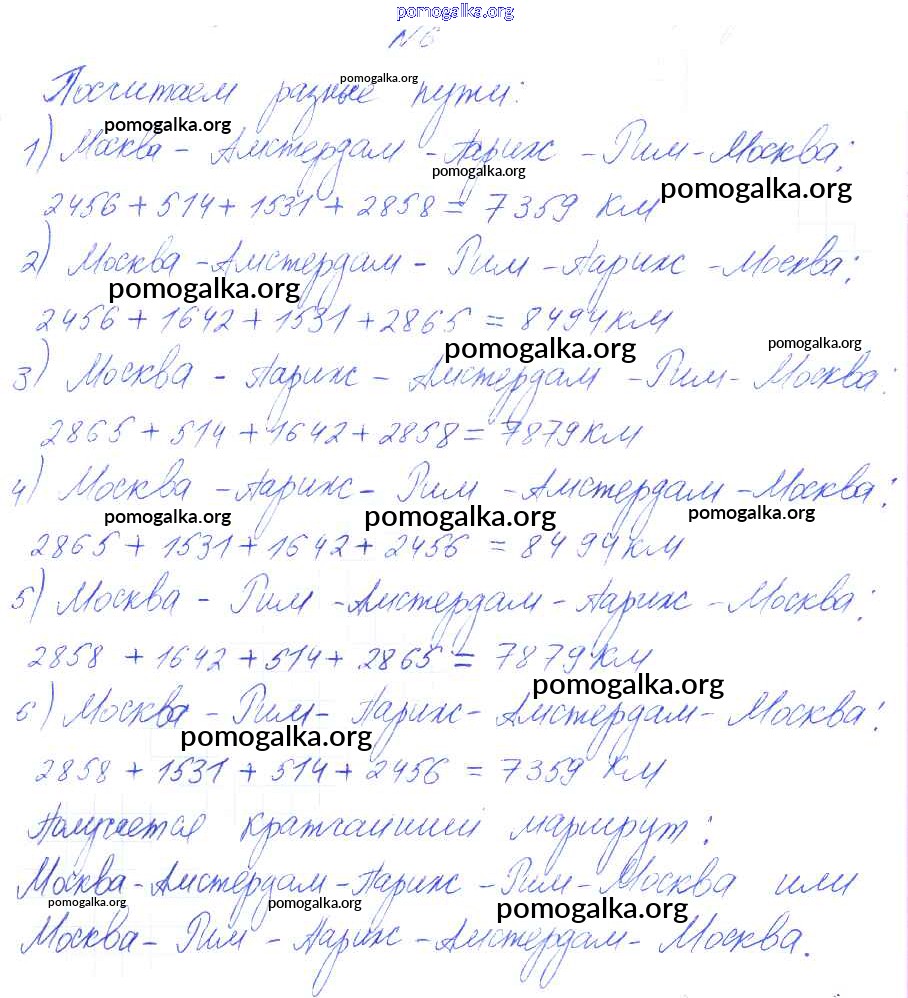 pomogalka.org
№6
Посчитаем разные пути:
pomogalka.org
pomogalka.org
1) Москва - Амстердам - Париж - Рим - Москва:
pomogalka.org
pomogalka.org
2456 + 514 + 1531 + 2858 = 7359 км
2) Москва - Амстердам - Рим - Париж - Москва:
pomogalka.org
2456 + 1642 + 1531 + 2865 = 8494 км
pomogalka.org
pomogalka.org
3) Москва - Париж - Амстердам - Рим - Москва:
2865 + 514 + 1642 + 2858 = 7879 км
4) Москва - Париж - Рим - Амстердам - Москва:
pomogalka.org
pomogalka.org
pomogalka.org
2865 + 1531 + 1642 + 2456 = 8494 км
5) Москва - Рим - Амстердам - Париж - Москва:
2858 + 1642 + 514 + 2865 = 7879 км
pomogalka.org
6) Москва - Рим - Париж - Амстердам - Москва:
pomogalka.org
2858 + 1531 + 514 + 2456 = 7359 км
Получается кратчайший маршрут:
Москва - Амстердам - Париж - Рим - Москва или
pomogalka.org
pomogalka.org
pomogalka.org
Москва - Рим - Париж - Амстердам - Москва.